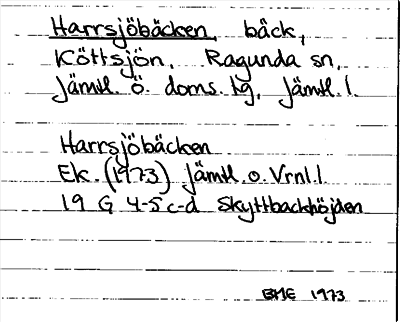 Harrsjöbäcken, bäck,
Köttsjön, Ragunda sn,
Jämtl. ö. doms. tg, Jämtl. l.
Harrsjöbäcken
Ek. (1973) Jämtl. o. Vrnl. l.
19 G 4-5 c-d Skyttbackhöjden
BME 1973